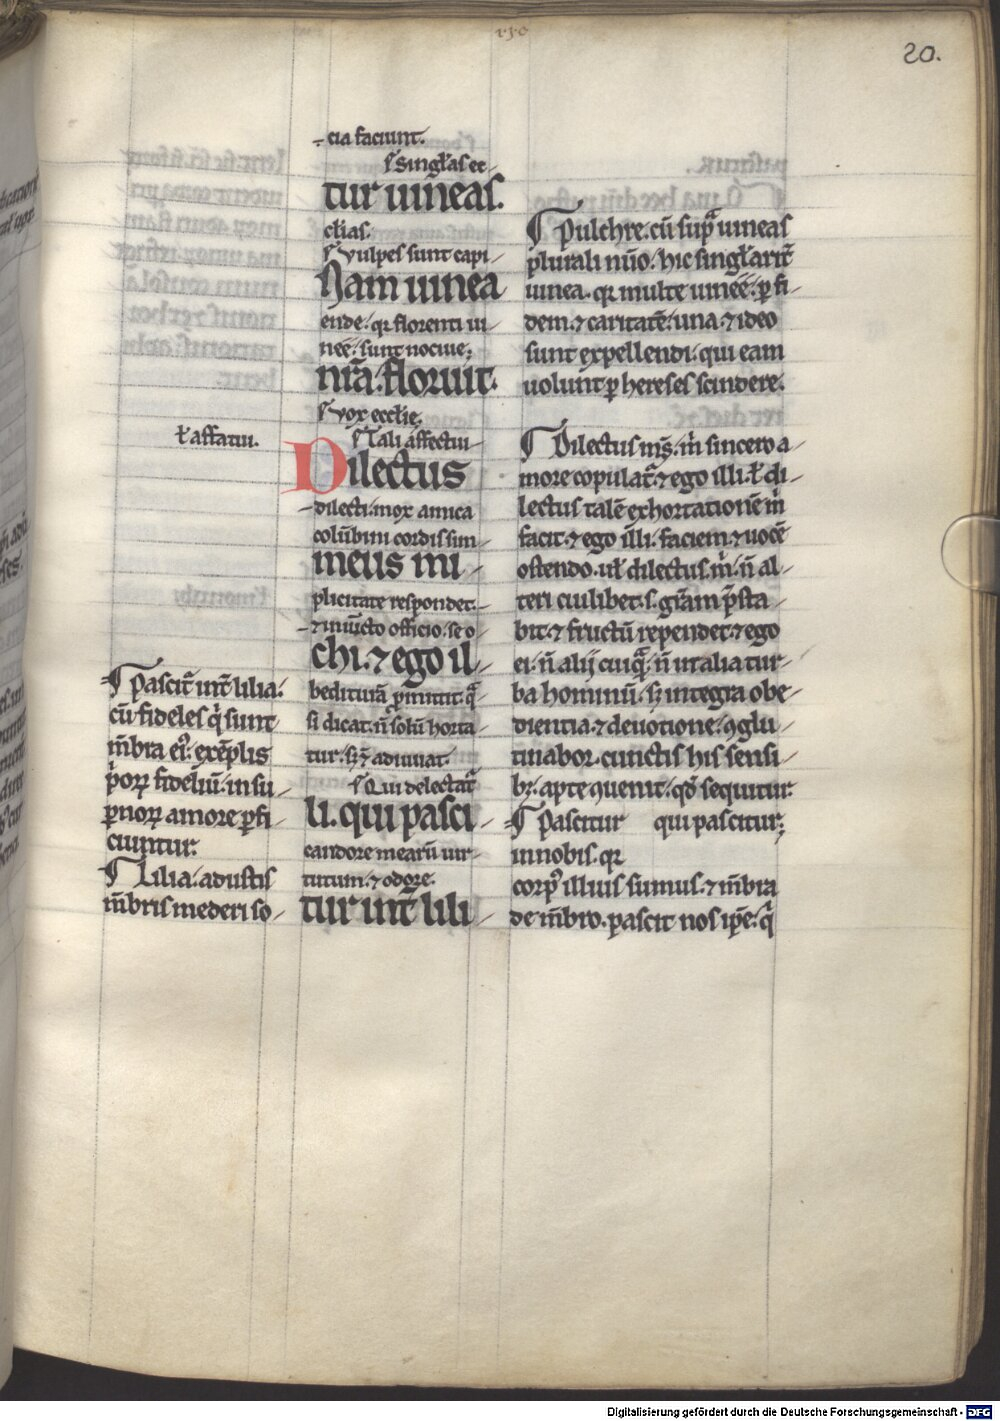 20.
-cia faciunt.
¶ Singl'as ec-
tur uineas.
cl'ias.
¶ vulpes sunt capi-
Nam uinea
ende. qr florenti ui-
neē. sunt nociue.
nr̄a. floruit.
¶ vox eccl'ie.
¶ Tali affectui-
Dilectus
-dilecti. mox amica
colūbini cordis sim-
meus mi-
plicitate respondet.-
-⁊ iniūcto officio. se o-
chi. ⁊ ego il-
bediturā p̄mittit. q̄
si dicat. n̄ solū horta-
tur. sꝫ ⁊ adiuuat.
¶ Qui delectat̄
li. qui pasci-
candore mearū uir-
tutum. ⁊ odore.
tur int̄ lili-
ł affatui.
¶ Pascit̄ int̄ lilia.
cū fideles q̇ sunt
m̄bra ei᷒. exēplis
ṗorꝝ fideliū. in su-
pnorꝝ amore pfi-
ciuntur.
¶ Lilia. adustis
m̄bris mederi so-
¶ Pulchre. cū sup̄ uineas
plurali nūo. hic singl'arit̄
uinea. qr multe uineē. p fi-
dem. ⁊ caritatē. una. ⁊ ideo
sunt expellendi. qui eam
uolunt p hereses scindere.
¶ Dilectus ms̄. ṁ sincero a-
more copulat̄. ⁊ ego illi. ł di-
lectus talē exhortationē ṁ
facit. ⁊ ego illi. faciem. ⁊ uocē
ostendo. ul' dilectus. ṁ. n̄ al-
teri cuilibet. s. gr̄am p̄sta-
bit. ⁊ fructū rependet. ⁊ ego
ei. n̄ alij cuiq̄. n̄ in alia tur-
ba hominū. sꝫ integra obe-
dientia. ⁊ deuotione. ꝯglu-
tinabor. cunctis his sensi-
bꝫ. apte ꝯuenit. qd̄ sequitur.
-¶ Pascitur qui pascitur;
in nobis. qr
corp᷒ illius sumus. ⁊ m̄bra
de m̄bro. pascit nos ip̄e. q̇
Digitalisierung gefördert durch die Deutsche Forschungsgemeinschaft - DFG